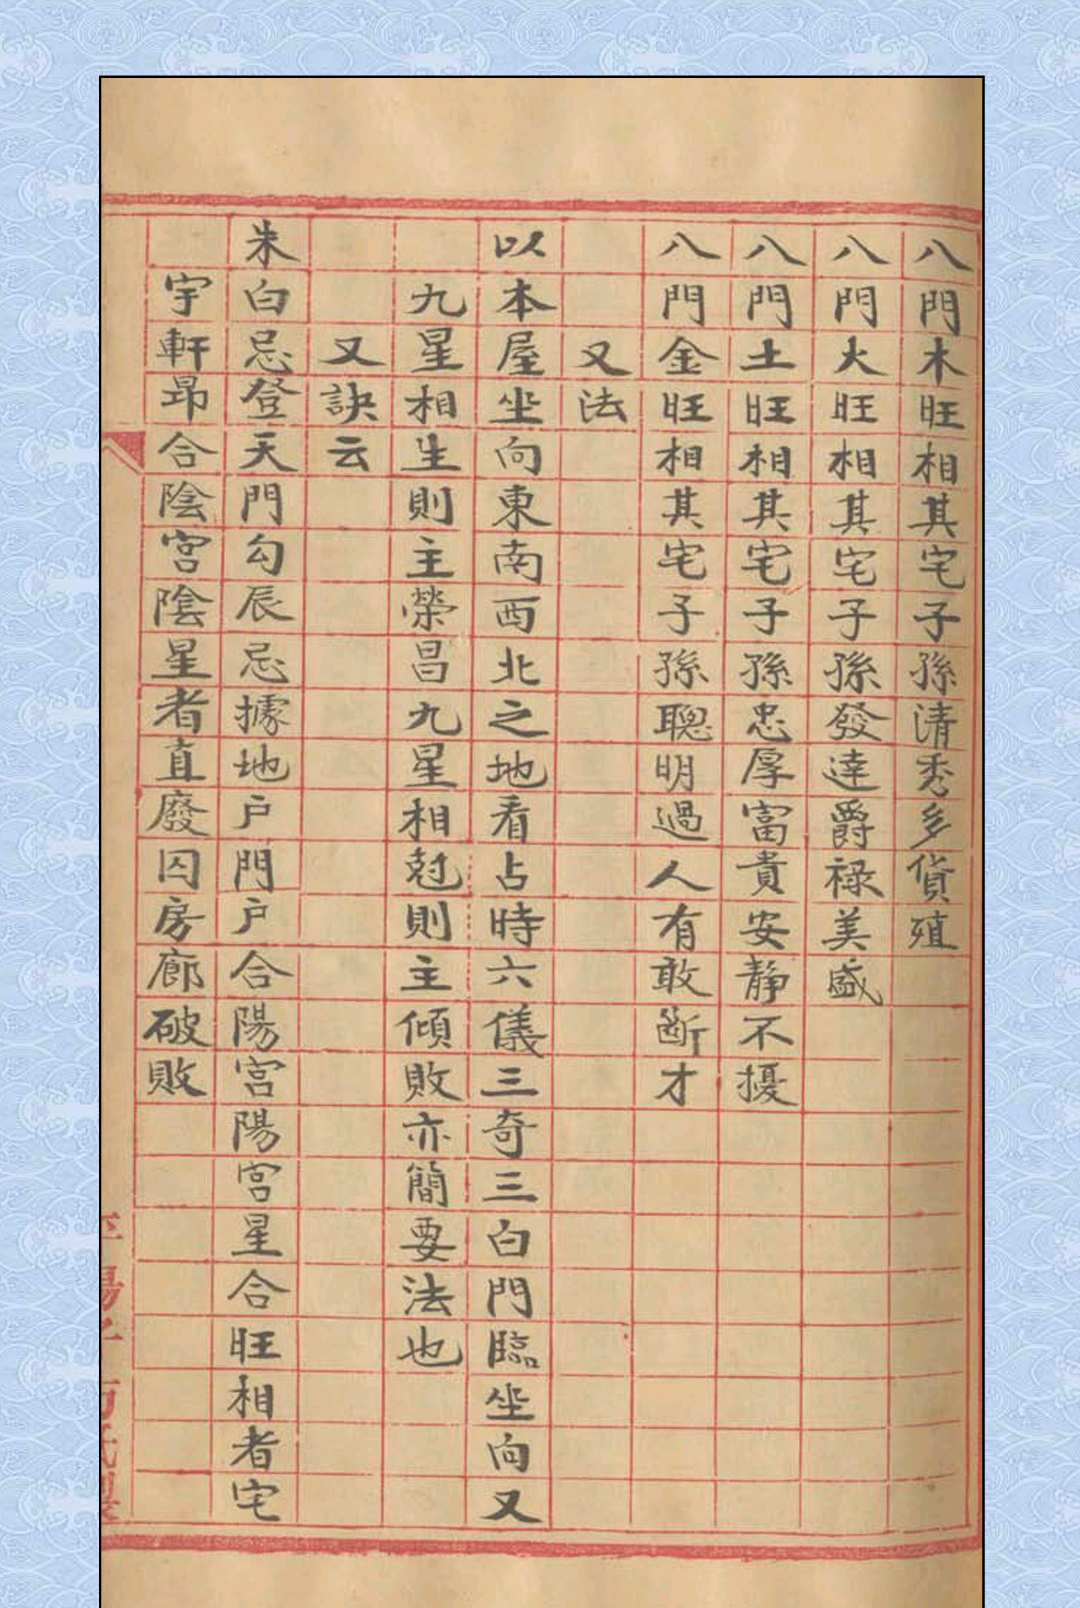 八門木旺相其宅子孫清秀多貨殖
八門火旺相其宅子孫發達爵祿美盛
八門土旺相其宅子孫忠厚富貴安靜不擾
八門金旺相其宅子孫聰明過人有敢斷才
又法
以本屋坐向東南西北之地看占時六儀三奇三白門臨坐向又
九星相生則主榮昌九星相尅則主傾敗亦簡要法也
又訣云
朱白忌登天門勾辰忌據地户門户合陽宮陽宮星合旺相者宅
宇軒昂合陰宮陰星者直廢囚房廊破敗